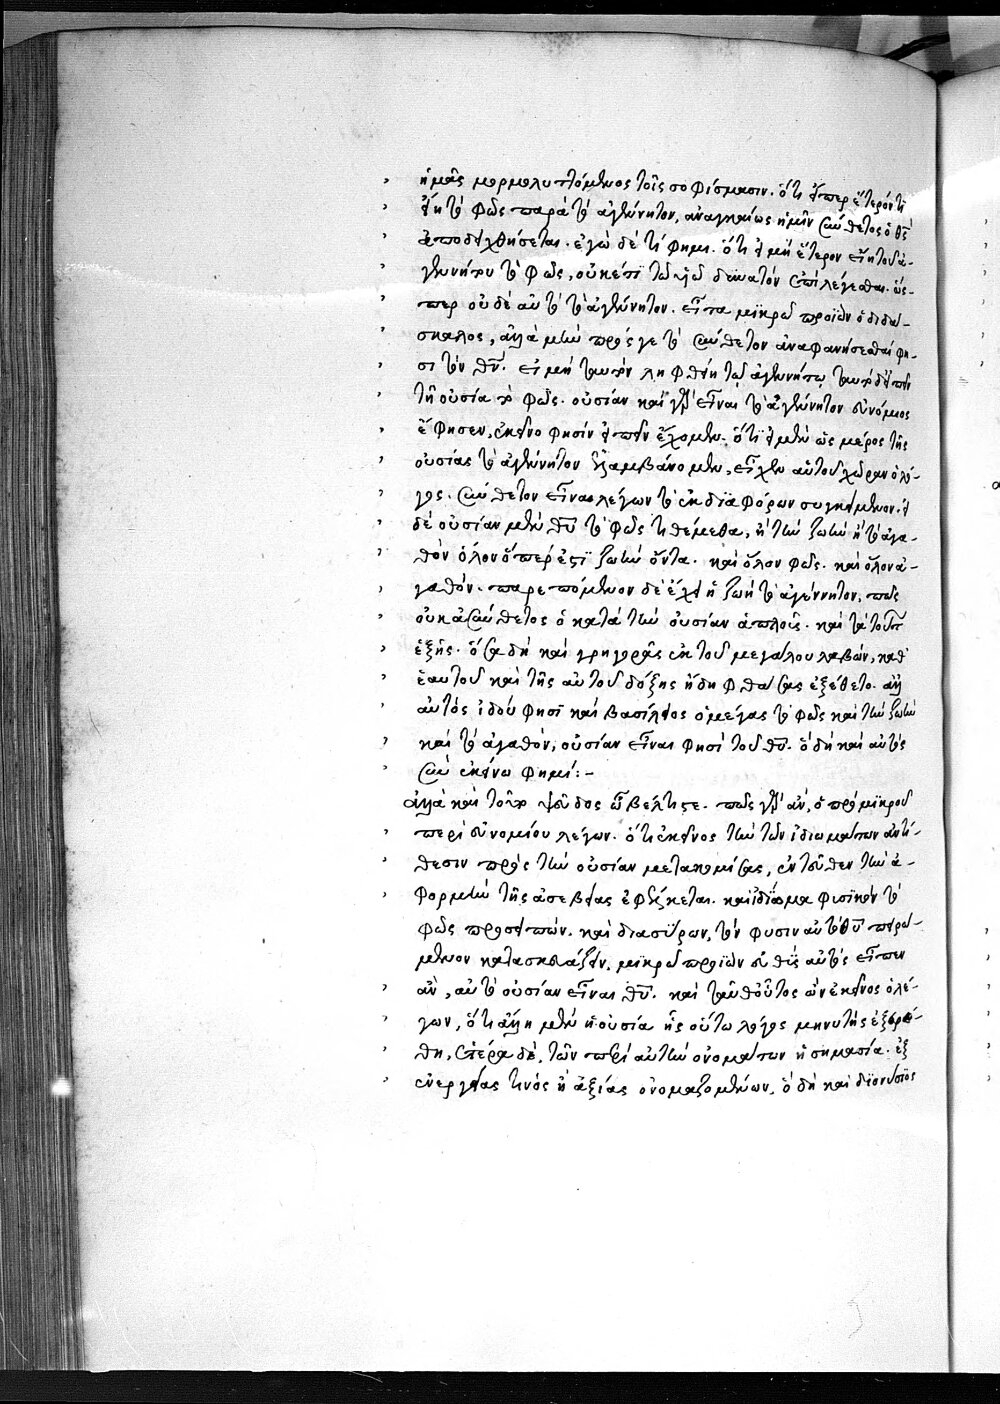 ἡμᾶς μορμολυττόμενος τοῖς σοφίσμασιν. ὅτι εἴπερ ἕτερόν τι
εἴη τὸ φῶς παρὰ τὸ ἀγέννητον, ἀναγκαίως ἡμῖν σύνθετος ὁ θς
ἀποδειχθήσεται. ἐγὼ δὲ τί φημι. ὅτι εἰ μὴ ἕτερον εἴη τοῦ ἀ-
γεννήτου τὸ φῶς, οὐκέτι τῶ υἱῶ δυνατὸν ἐπιλέγεσθαι. ὥσ-
περ οὐδὲ αὐτὸ τὸ ἀγέννητον. εἶτα μικρὸν προϊὼν ὁ διδά-
σκαλος, ἀλλὰ μὴν πρός γε τὸ σύνθετον ἀναφανήσεσθαί φη-
σι τὸν θν. εἰ μὴ ταυτὸν ληφθείη τῶ ἀγεννήτω
τῆ οὐσία τὸ φῶς. οὐσίαν καὶ γὰρ εἶναι τὸ ἀγέννητον εὐνόμιος
ἔφησεν, ἐκεῖνο φησὶν εἰπεῖν ἔχομεν. ὅτι εἰ μὲν ὡς μέρος τῆς
οὐσίας τὸ ἀγέννητον ἐλαμβάνομεν, εἶχεν αὐτοῦ χώραν ὁ λό-
γος. σύνθετον εἶναι λέγων τὸ ἐκ διαφόρων συγκείμενον. εἰ
δὲ οὐσίαν μὲν θυ τὸ φῶς τιθέμεθα, ἢ τὴν ζωὴν ἢ τὸ ἀγα-
θὸν ὅλον ὅπερ ἐστὶ ζωὴν ὄντα. καὶ ὅλον φῶς. καὶ ὅλον ἀ-
γαθόν. παρεπόμενον δὲ ἔχει ἡ ζωὴ τὸ ἀγέννητον, πῶς
οὐκ ἀσύνθετος ὁ κατὰ τὴν οὐσίαν ἁπλοῦς. καὶ τὰ τούτοις
ἑξῆς. ὅσα δὴ καὶ γρηγορᾶς ἐκ τοῦ μεγάλου λαβών, καθ
ἑαυτοῦ καὶ τῆς αὐτοῦ δόξης ἤδη φθάσας ἐξέθετο. ἀλλ
αὐτός ἰδού φησι καὶ βασίλειος ὁ μέγας τὸ φῶς καὶ τὴν ζωὴν
καὶ τὸ ἀγαθόν, οὐσίαν εἶναι φησὶ τοῦ θυ. ὃ δὴ καὶ αὐτὸς
σὺν ἐκείνω φημί:-
ἀλλὰ καὶ τοῦτο ψεῦδος ὦ βέλτιστε. πῶς γὰρ ἂν, ὁ πρὸ μικροῦ
περὶ εὐνομίου λέγων. ὅτι ἐκεῖνος τὴν τῶν ἰδιωμάτων ἀντί-
θεσιν πρὸς τὴν οὐσίαν μετακομίσας, ἐντεῦθεν τὴν ἀ-
φορμὴν τῆς ἀσεβείας ἐφευρίσκεται. καὶ ἰδίωμα φυσικὸν τὸ
φῶς προσειπών. καὶ διασύρων, τὸν φύσιν αὐτὸ θυ
κατασκευάζειν, μικρὸν προϊὼν εὐθὺς αὐτὸς εἶπεν
ἂν, αὐτὸ οὐσίαν εἶναι θυ. καὶ ταῦθ οὗτος ὢν ἐκεῖνος ὁ λέ-
γων, ὅτι ἄλλη μὲν ἡ οὐσία ἧς οὔπω λόγος μηνυτὴς ἐξευρέ-
θη, ἑτέρα δὲ, τῶν περὶ αὐτὴν ὀνομάτων ἡ σημασία. ἐξ
ἐνεργείας τινὸς ἢ ἀξίας ὀνομαζομένων. ὃ δὴ καὶ διονύσιος